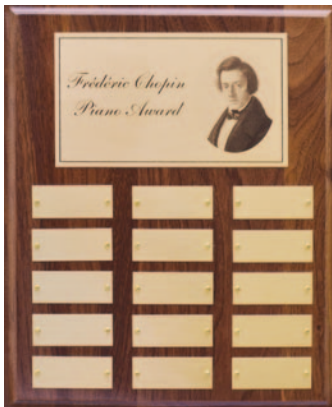 Frédéric Chopin
Piano Award